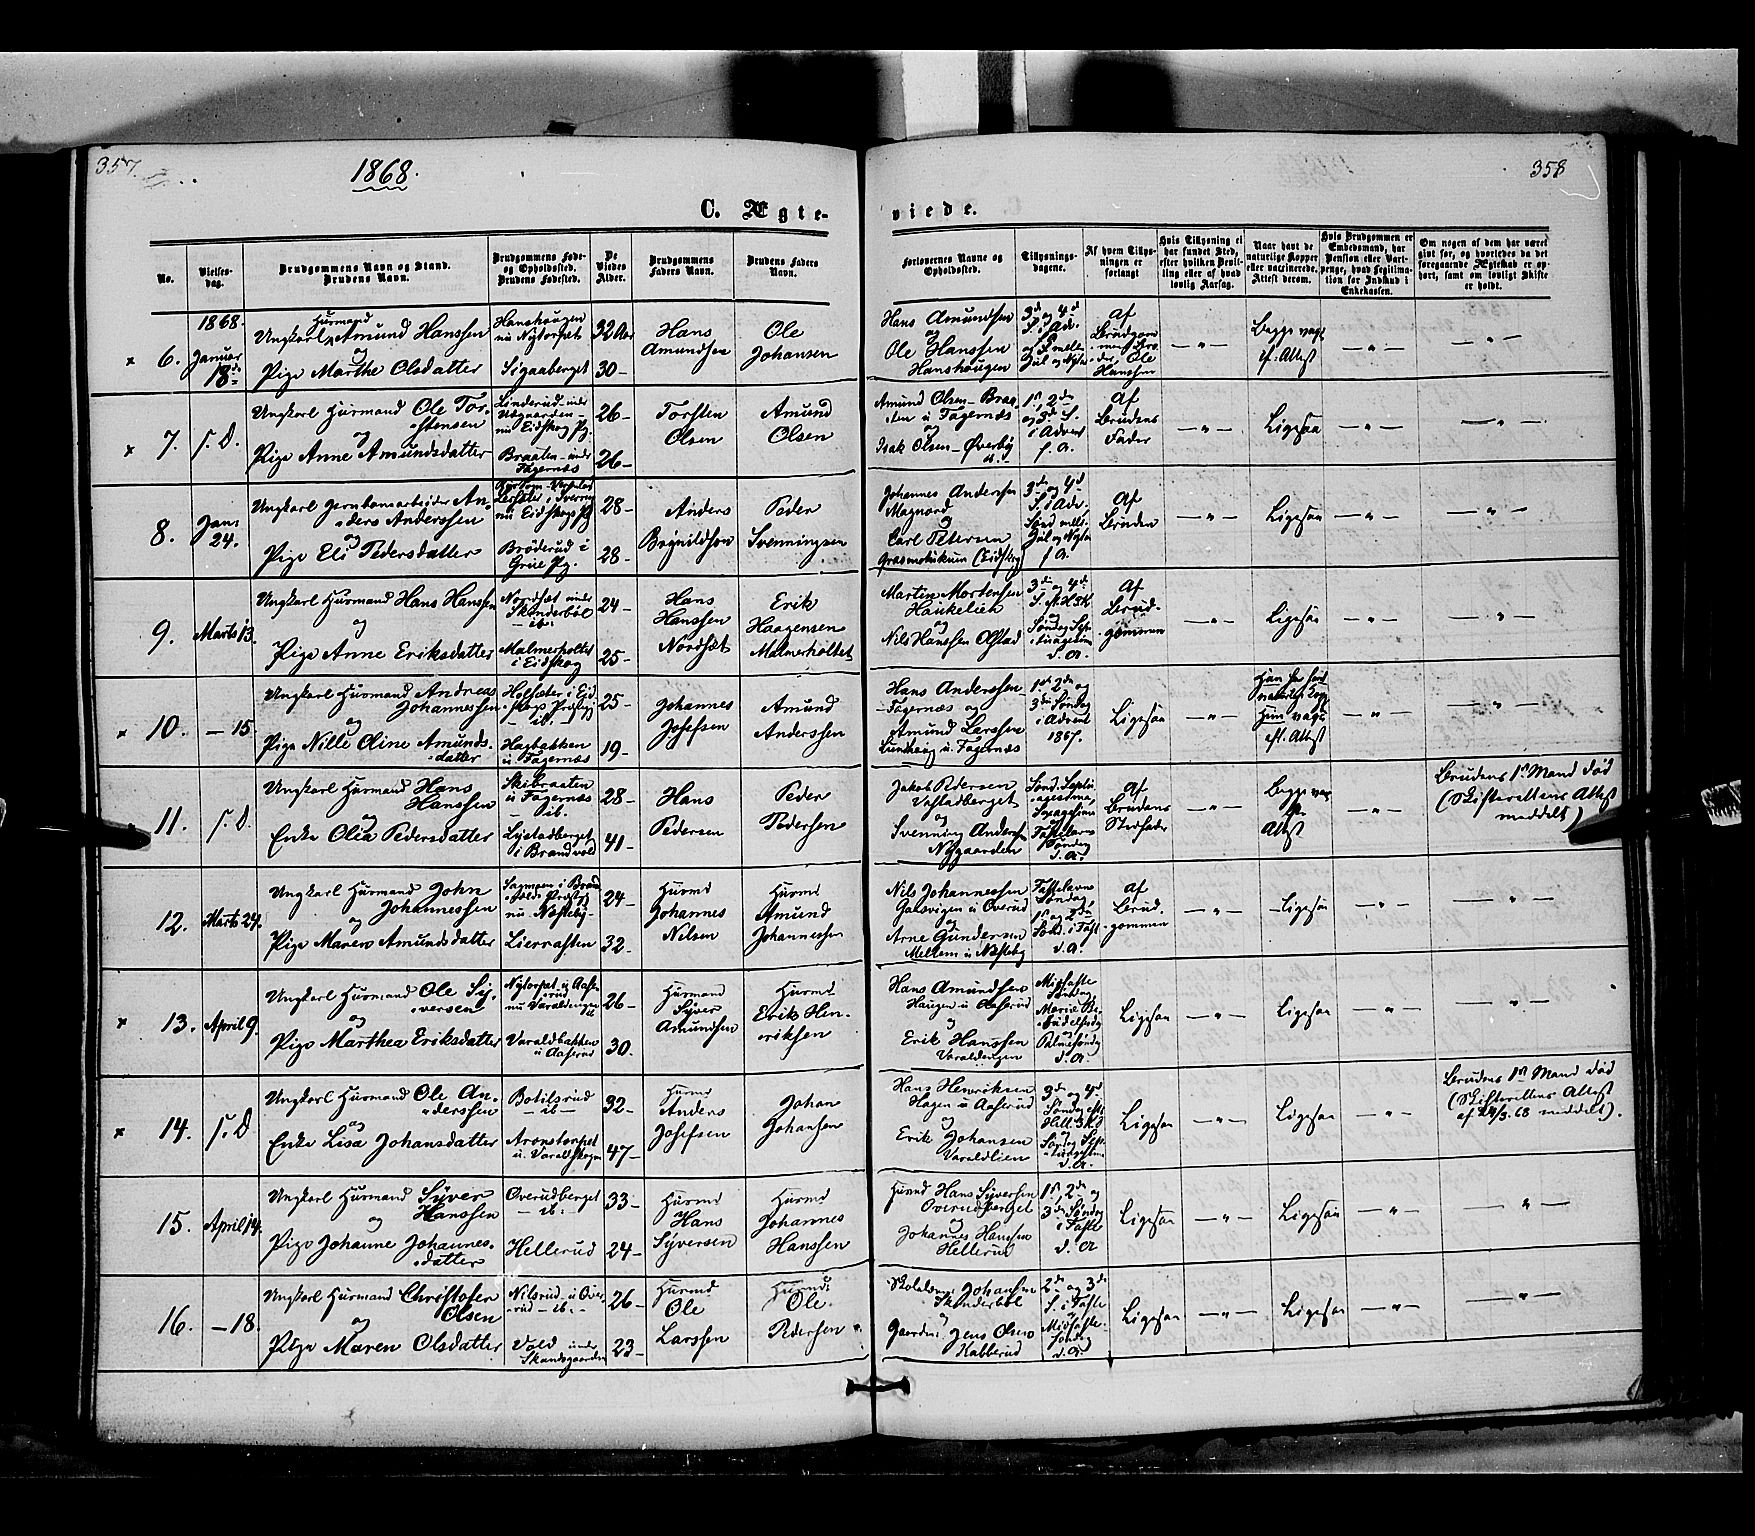 357.
1868.
358
C. Ægte-
viede.
No.
Vielses-
dag.
Brudgommens Navn og Stand.
Brudens Navn.
Brudgommens Føde-
og Opholdssted.
Brudens Fødested.
De
Viedes
Alder.
Brudgommens
Faders Navn.
Brudens Faders
Navn.
Forlovernes Navne og
Opholdssted.
Tillysnings-
dagene.
Af hvem Tillys-
ningen er
forlangt
Hvis Tillysning ei
har fundet Sted,
efter hvilken Bevil-
ling eller af hvad
lovlig Aarsag.
Naar havt de
naturlige Kopper
eller vaccinerede.
Attest derom.
Hvis Brudgommen er
Embedsmand, har
Pension eller Vart-
penge, hvad Legitima-
tion for Indskud i
Enkekassen.
Om nogen af dem har været
gift før, og hvorledes da det
foregaaende Ægteskab er op-
hørt, samt om lovligt Skifte
er holdt.
1868.
6. Januar
18de
Husmand
Ungkarl Amund Hanssen
og
Pige Marthe Olsdatter
Hanshaugen
nu Nytorpet
Sigaaberget
32 Aar
30-
Hans
Amundsen
Ole
Johansen
Hans Amundsen
og
Ole Hanssen
Hanshaugen
3de og 4de
S. i Adv.
og S. mellem
Jul og Nytaar
Af
Brudgom-
mens Bro-
der, Ole
Hanssen
-"-
Begge vacc.
if. Attest
-"-
-"-
7. s. D.
Ungkarl Husmand Ole Tor-
stensen
og
Pige Anne Amundsdatter
Linderud under
nu Eidskog Pg.
Braaten under
Fagernæs
26-
26-
Torsten
Olsen
Amund
Olsen
Amund Olsen Braa-
ten u Fagernæs
og
Isak Olsen Øverby
1ste, 2de
og 3de S.
i Advent
f. A.
Af
Brudens
Fader
-"-
Ligesaa
-"-
-"-
8. Jan:
24.
Ungkarl Jernbanearbeider An-
ders Anderssen
og
Pige Eli Pedersdatter
nu Eidskogs Pg
Brøderud i
Grue Pg.
28-
28-
Anders
Brynildsen
Peder
Svenningsen
Johannes Anderssen
Magnord
og
Carl Petersen
(Eidskog)
3de og 4de
S. i Adv,
Sønd. mell.
Jul og Nytaar
f. A.
Af
Bruden
-"-
Ligesaa
-"-
-"-
9. Marts 13.
Ungkarl Husmand Hans Hanssen
og
Pige Anne Eriksdatter
Nordset under
Skinderbøl
- ib:
Malmerholtet
i Eidskog
24-
25-
Hans
Hanssen
Nordset
Erik
Haagensen
Malmerholtet
Martin Mortensen
Haukelien
og
Nils Hanssen Olstad
3de og 4de
Af
Brud-
gommen
-"-
Ligesaa
-"-
-"-
10. -15
Ungkarl Husmand Andreas
Johannessen
og
Pige Nille Oline Amunds-
datter
Holsæter i Eid-
skogs Præstegj
- ib. -
Hagbakken
u Fagernæs
25-
19-
Johannes
Josefsen
Amund
Anderssen
Hans Anderssen
Fagernæs og
Amund Larssen
u. Fagernæs
1ste 2de og
3die Søndag
i Advent
1867.
Ligesaa
-"-
Han har havt
naturlige Kopp.
Hun vacc.
eft. Attest
-"-
-"-
11. s. D.
Ungkarl Husmand Hans
Hanssen
og
Enke Olia Pedersdatter
Skibraaten
u Fagernæs
- ib.
Lystadberget
i Brandvold
28-
41-
Hans
Pedersen
Peder
Pedersen
Jakob Pedersen
og
Svenning Anders.
Nygaarden
Sønd. Septu-
agesima,
Fastelavns
Søndag
d. A.
Af
Brudens
Stedfader
-"-
Begge vac.
Attest
-"-
Brudens 1ste Mand død
(Skifterettens Attest
meddelt)
12. Marts 24.
Ungkarl Husmand John
Johannessen
og
Pige Maren Amundsdatter
Sagmoen i Brand-
volds Præstegj
nu Næsteby-
Lierrasten
24-
32-
Husmd
Johannes
Nilsen
Husmd
Amund
Johannessen
Nils Johannessen
Galsvigen u Overud
og
Arne Gundersen
Mellem u Næsteby
Fastelavns
Søndag,
1ste og 2den
Sønd. i Fast.
d. A.
Af
Brud-
gommen
-"-
Ligesaa
-"-
-"-
13. April 9.
Ungkarl Husmand Ole Sy-
versen
og
Pige Marthea Eriksdatter
Nytorpet u Aase-
rud
nu Varaldengen
Varaldbakken
u Aaserud
26-
30.
Husmand
Syver
Amundsen
Husmd
Erik Hen-
riksen
Hans Amundsen
Haugen u Aaserud
og
Erik Hanssen
Varaldengen
Midfaste
Søndag
Mariæ Be-
budelsesdg
Palmesøndg
d. A.
Ligesaa
-"-
Ligesaa
-"-
-"-
14. s. D
Ungkarl Husmand Ole An-
derssen
og
Enke Lisa Johansdatter
Botilsrud
- ib -
Aronstorpet
u. Varaldskogen
32-
47-
Husmd
Anders
Josefsen
Johan
Johansen
Hans Henriksen
Hagen u Aaserud
og
Erik Johansen
Varaldlien
3de og 4de
Søndag eft.
Hell. 3 K.
Ligesaa
-"-
Ligesaa
-"-
Brudens 1ste Mand død
(Skifterettens Attest
af 24/3. 68 meddelt).
15. April 14.
Ungkarl Husmand Syver
Hanssen
og
Pige Johanne Johannes-
datter
Overudberget
- ib:
Hellerud
33-
24-
Husmd
Hans
Syversen
Husmd
Johannes
Hanssen
Husmd Hans Syversen
Overudberget
og
Johannes Hanssen
Hellerud
1ste 2de og
3de Søndag
i Faste
d. A
Ligesaa
-"-
Ligesaa
-"-
-"-
16. -18.
Ungkarl Husmand Christofer
Olsen
og
Pige Maren Olsdatter
Nilsrud u Over-
rud - ib. -
Vold under
Skansgaarden
26-
23-
Husmd
Ole
Larssen
Husmd
Ole
Pedersen
Johansen
Skinderbøl
og
Gaardm. Jens Olsen
Habberud
2de og 3de
S. i Faste
Midfaste-
Søndg
d. A.
Ligesaa
-"-
Ligesaa
-"-
-"-